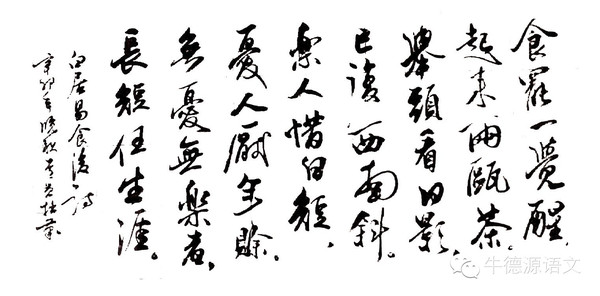 食罷一覺醒，
起来兩甌茶。
舉頭看日影，
已復西南斜。
樂人惜日短，
憂人厭年賒。
無憂無樂者，
長短任生涯。
白居易食後一詩
辛卯年晚秋
牛德源语文